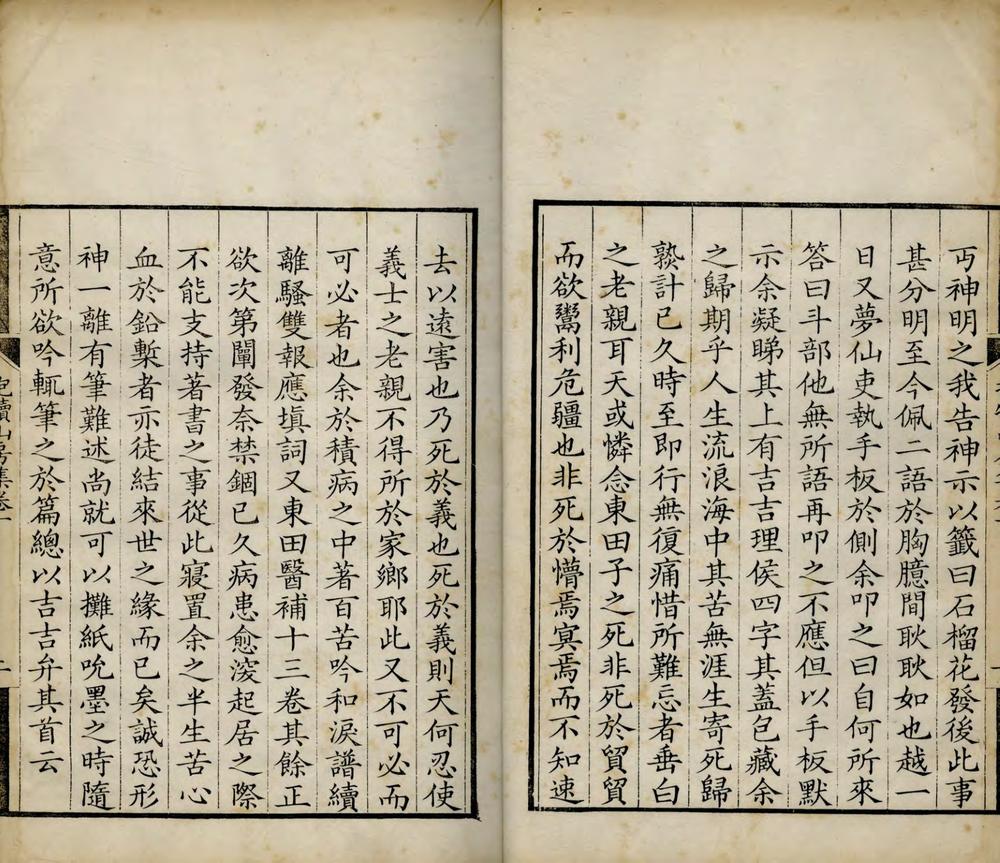 丐神明之我告神示以籤曰石榴花發後此事
甚分明至今佩二語於胸臆間耿耿如也越一
日又夢仙吏執手板於側余叩之曰自何所來
答曰斗部他無所語再叩之不應但以手板默
示余凝睇其上有吉吉理侯四字其蓋包藏余
之歸期乎人生流浪海中其苦無涯生寄死歸
孰計已久時至即行無復痛惜所難忘者垂白
之老親耳天或憐念東田子之死非死於貿貿
而欲鬻利危疆也非死於懵焉寞焉而不知速
去以遠害也乃死於義也死於義則天何忍使
義士之老親不得所於家鄉耶此又不可必而
可必者也余於積病之中著百苦吟和淚譜續
離騷雙報應填詞又東田醫補十三卷其餘正
欲次第闡發奈禁錮已久病患愈深起居之際
不能支持著書之事從此寢置余之半生苦心
血於鉛槧者亦徒結來世之緣而已矣誠恐形
神一離有筆難述尚就可以攤紙吮墨之時隨
意所欲吟輒筆之於篇總以吉吉弁其首云
抱犢山房集卷一
二